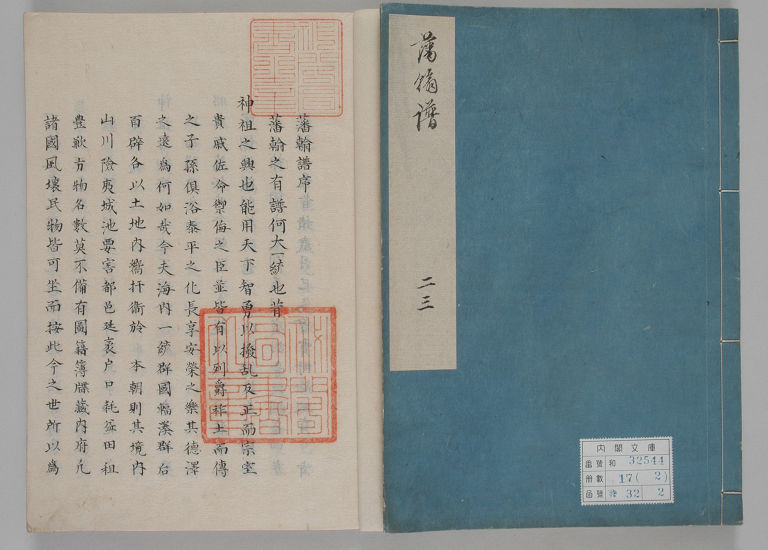 藩翰譜
二三
内閣文庫
番號 和 32544
冊數 17(2)
函號 32 2
藩翰譜序
藩翰之有譜何大一統也昔
神祖之興也能用天下智勇以撥乱反正而宗室
貴戚佐命禦侮之臣並皆有以列爵祚土而傳
之子孫俱浴泰平之化長享安榮之樂其德澤
之遠為何如哉今夫海内一統群國輻湊群后
百辟各以土地内衞扞衞於 本朝則其境内
山川險夷城池要害都邑廷袤户口耗益田租
豊歉方物名數莫不備有圖籍簿牒藏内府凡
諸國風壤民物皆可坐而按此今之世所以為